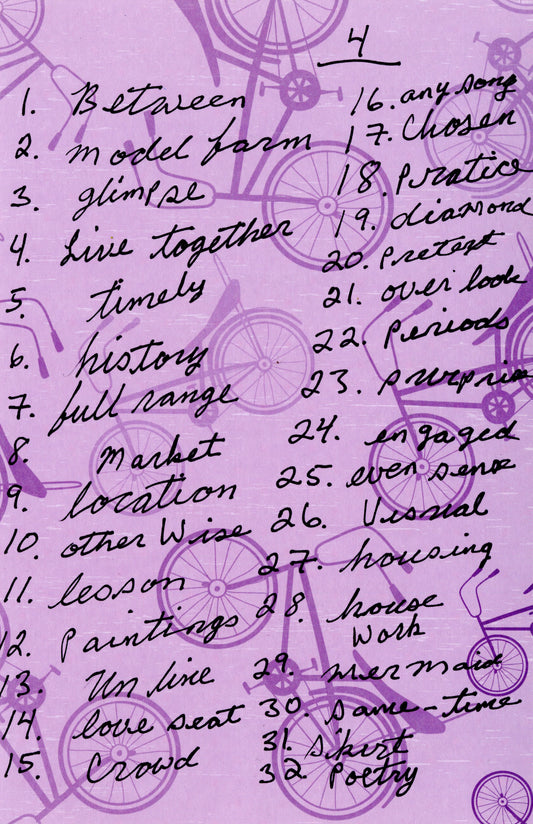 4
1. Between
2. model farm
3. glimpse
4. Live together
5. timely
6. history
7. full range
8. Market
9. location
10. other Wise
11. lesson
12. Paintings
13. Un line
14. love seat
15. Crowd
16. any song
17. Chosen
18. Pratice
19. diamond
20. Pretext
21. over look
22. Periods
23. surprise
24. engaged
25. even sense
26. Visual
27. housing
28. house
Work
29. mermaid
30. same-time
31. skirt
32. Poetry